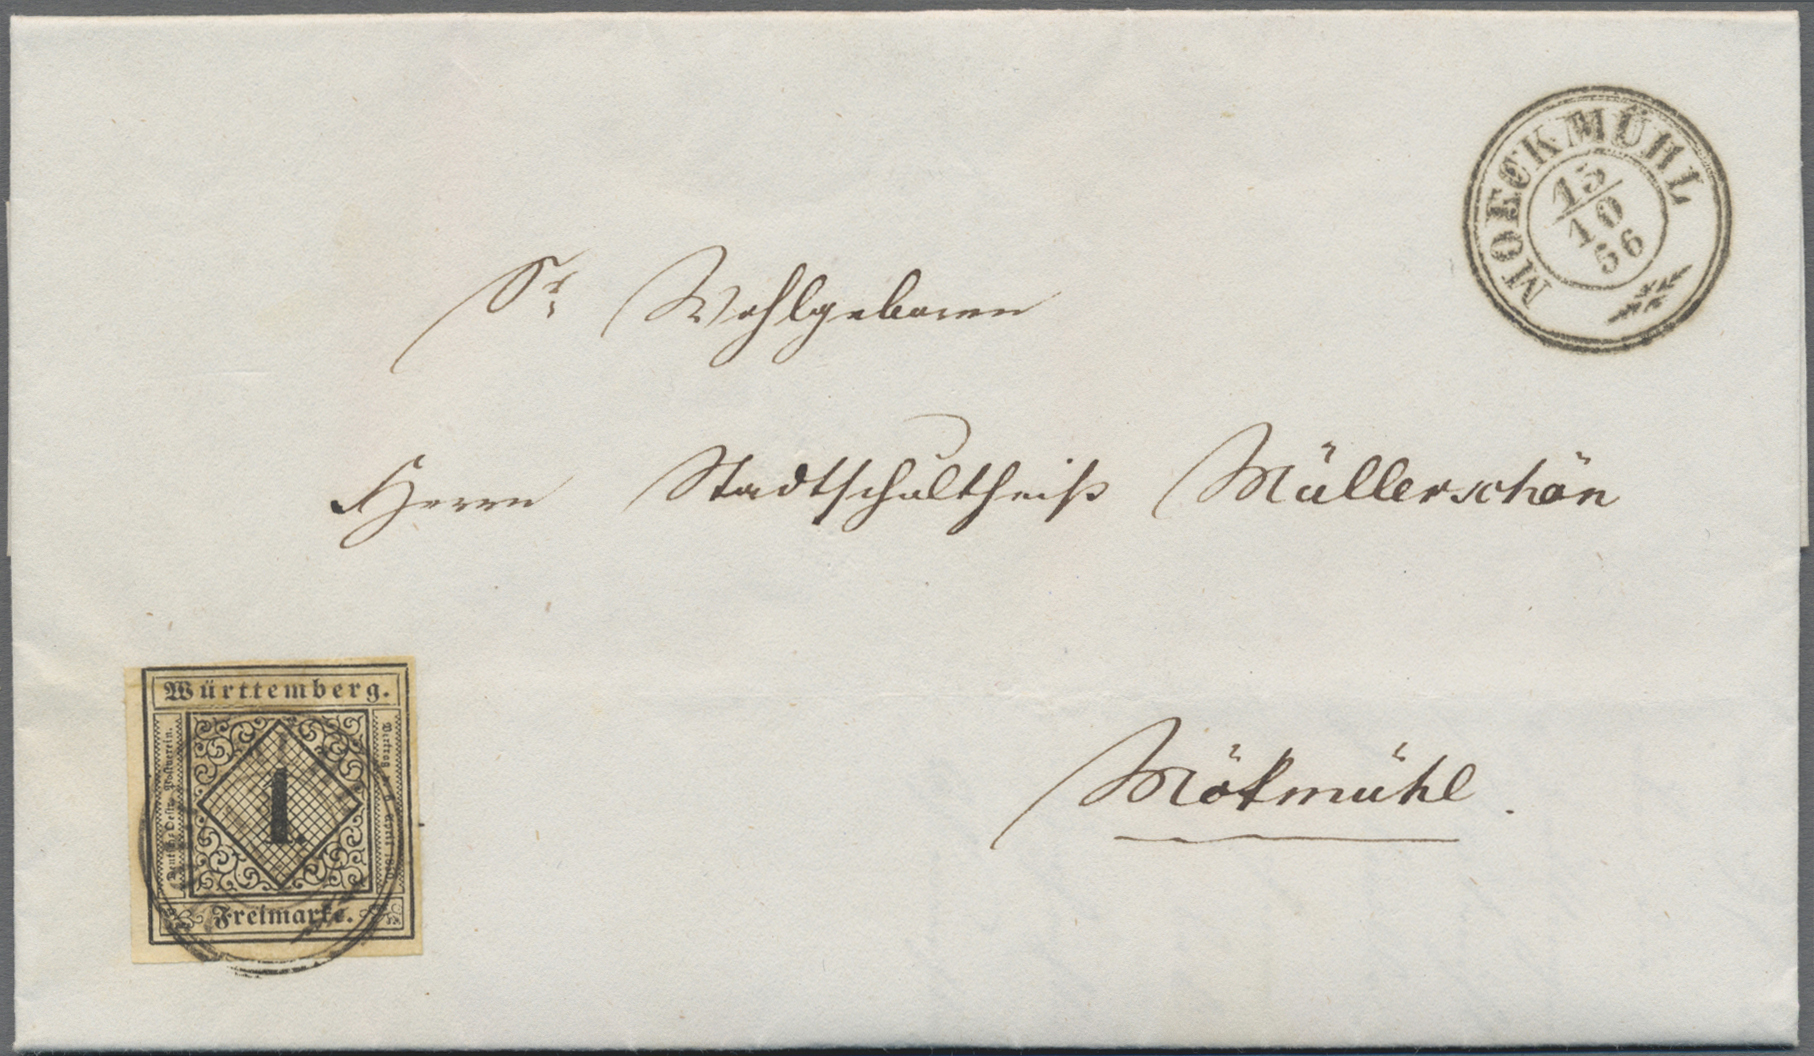 MOECKMÜHL
15
10
56
Sr. Wohlgeboren
Herrn Stadtschultheiß Müllerschön
Mökmühl.
Württemberg.
1.
Freimarke.